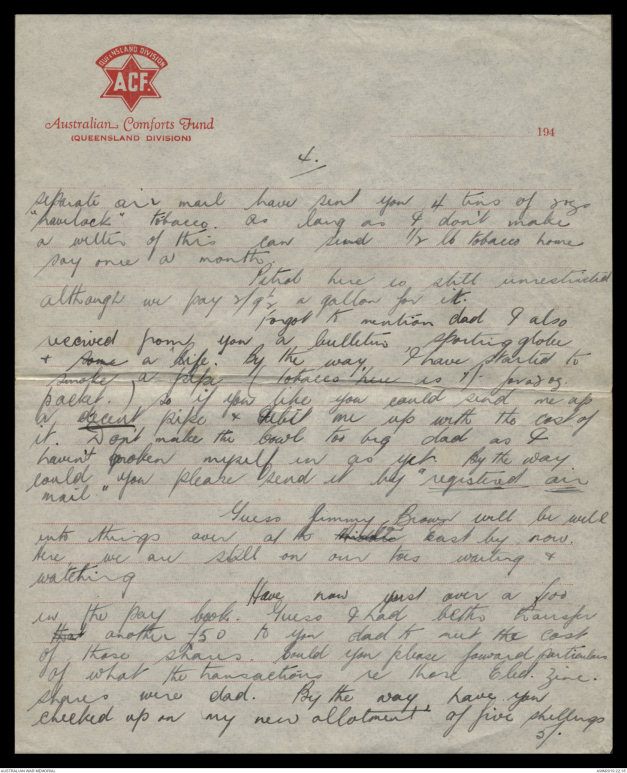 QUEENSLAND DIVISION
ACF.
Australian Comforts Fund
(QUEENSLAND DIVISION)
194
4.
separate air mail have sent you 4 tins of 2ozs
"havelock" tobacco. as long as I don't make
a welter of this can send 1/2 lb tobacco home
say once a month.
Petrol here is still unrestricted
although we pay 2/9½ a gallon for it.
Forgot to mention dad I also
received from you a bulletin, sporting globe
+ some a life. By the way I have started to
smoke a pipe (tobacco here is 1/- for 2 oz.
packet.) so if you like you could send me up
a decent pipe & debit me up with the cost of
it. Don't make the bowl too big dad as I
haven't broken myself in as yet. By the way
could you please send it by "registered air
mail"
Guess Jimmy Brown will be well
into things over at the middle east by now.
Here we are still on our toes waiting &
watching
Have now just over a £00
in the pay book. Guess I had better transfer
that another £50 to you dad to meet the cost
of those shares. Could you please forward particulars
of what the transactions re those Elec. Zinc.
shares were dad. By the way have you
checked up on my new allotment of five shillings
5/.
AUSTRALIAN WAR MEMORIAL